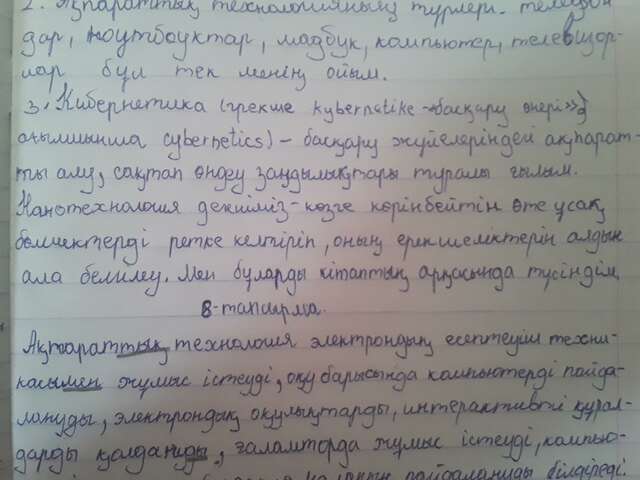 2. Ақпараттық технологияның түрлері. телефон
дар, ноутбоуктар, мадбук, компьютер, телевизор-
лар бұл тек менің ойым.
3. Кибернетика (грекше kybernetike - басқару өнері >>)
ағылшынша cybernetics) - басқару жүйелеріндей ақпарат-
ты алу, сақтап өңдеу заңдылықтары туралы ғылым.
Нанотехнология декиміз - көзге көрінбейтін өте ұсақ
бөлшектерді ретке келтіріп, оның ерекшеліктерін алдын
ала белгілеу. Мен бұларды кітаптың арқасында түсіндім
8-тапсырма.
Ақпараттық технология электрондық есептеуіш техни-
касымен жұмыс істеуді, оқу барысында компьютерді пайда-
лануды, электрондық оқулықтарды, интерактивті құрал-
дарды қолдануды, ғаламторда жұмыс істеуді, компью-
пайдалануды білдіреді.